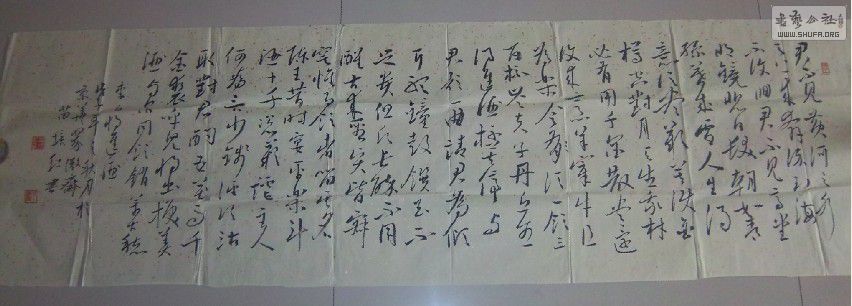 书艺公社
WWW.SHUFA.ORG
君不见黄河之水
天上来奔流到海
不复回君不见高堂
明镜悲白发朝如青
丝暮成雪人生得
意须尽欢莫使金
樽空对月天生我材
必有用千金散尽还
复来烹羊宰牛且
为乐会须一饮三
百杯岑夫子丹丘生
将进酒杯莫停与
君歌一曲请君为我倾
耳听钟鼓馔玉不
足贵但愿长醉不用
醒古来圣贤皆寂
寞惟有饮者留其名
陈王昔时宴平乐斗
酒十千恣欢谑主人
何为言少钱径须沽
取对君酌五花马千
金裘呼儿将出换美
酒与尔同销万古愁
李白将进酒
年秋月於
京华斋
苗培红书